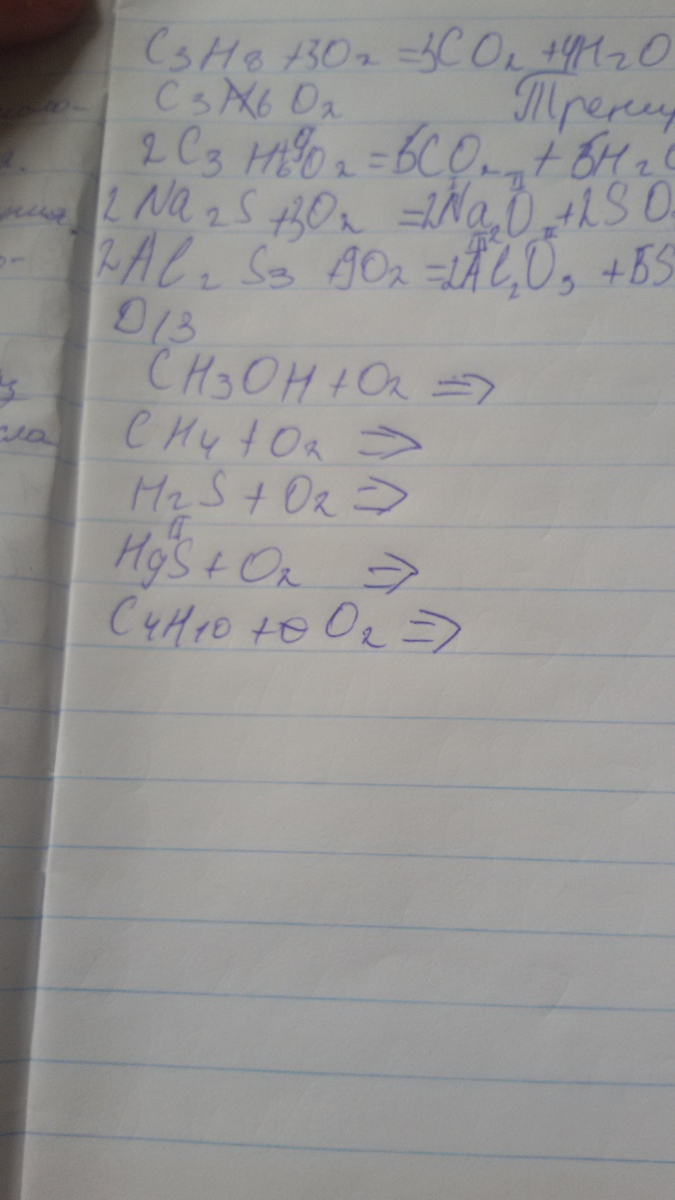 C3H8 + 3O2 = 3CO2 + 4H2O
C3H6 O2
2C3H6 + 9O2 = 6CO2 + 6H2
2Na2S + 3O2 = 2Na2O + 2SO
2Al2S3 + 9O2 = 2Al2O3 + 6S
D/3
CH3OH + O2 ⇒
CH4 + O2 ⇒
H2S + O2 ⇒
II
HgS + O2 ⇒
C4H10 + O2 ⇒